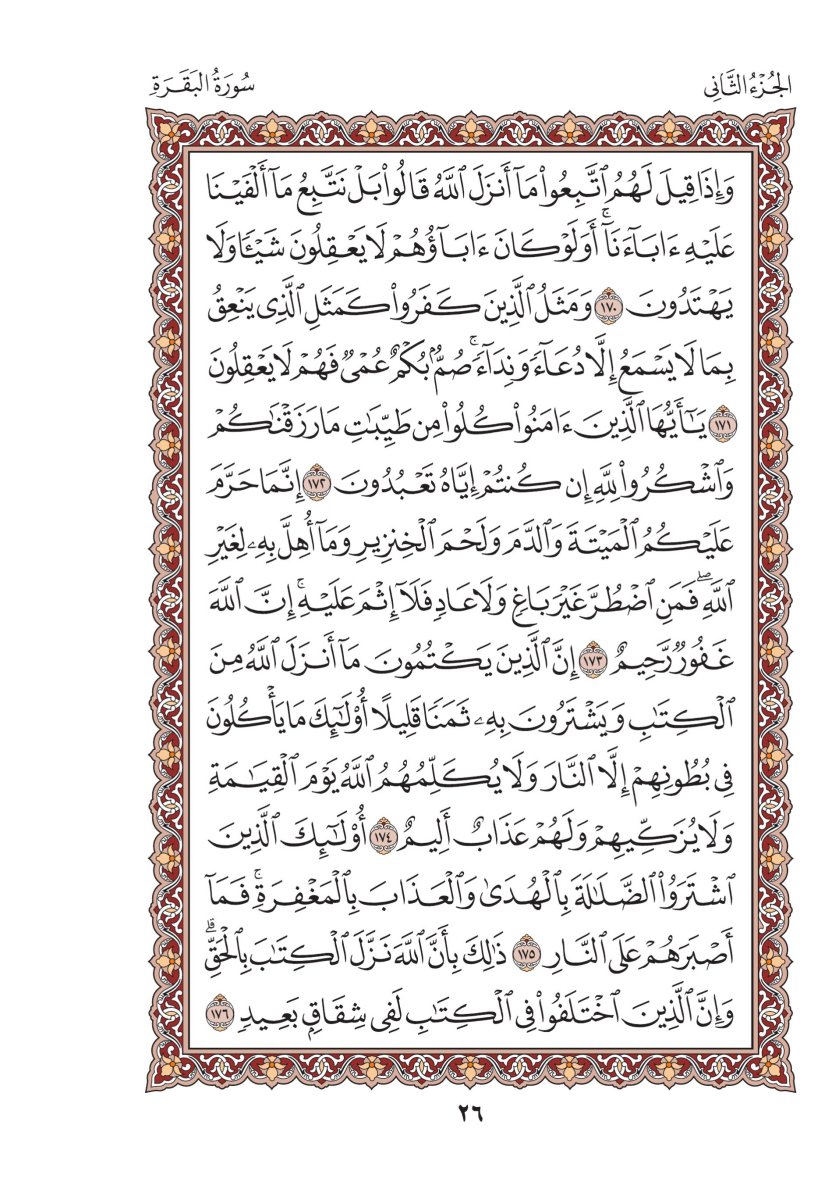 الجُزْءُ الثَّانِي
سُورَةُ البَقَرَةِ
وَإِذَا قِيلَ لَهُمُ ٱتَّبِعُوا۟ مَآ أَنزَلَ ٱللَّهُ قَالُوا۟ بَلْ نَتَّبِعُ مَآ أَلْفَيْنَا
عَلَيْهِ ءَابَآءَنَآۚ أَوَلَوْ كَانَ ءَابَآؤُهُمْ لَا يَعْقِلُونَ شَيْـًٔا وَلَا
يَهْتَدُونَ ١٧٠ وَمَثَلُ ٱلَّذِينَ كَفَرُوا۟ كَمَثَلِ ٱلَّذِى يَنْعِقُ
بِمَا لَا يَسْمَعُ إِلَّا دُعَآءً وَنِدَآءًۚ صُمٌّۢ بُكْمٌ عُمْىٌ فَهُمْ لَا يَعْقِلُونَ
١٧١ يَـٰٓأَيُّهَا ٱلَّذِينَ ءَامَنُوا۟ كُلُوا۟ مِن طَيِّبَـٰتِ مَا رَزَقْنَـٰكُمْ
وَٱشْكُرُوا۟ لِلَّهِ إِن كُنتُمْ إِيَّاهُ تَعْبُدُونَ ١٧٢ إِنَّمَا حَرَّمَ
عَلَيْكُمُ ٱلْمَيْتَةَ وَٱلدَّمَ وَلَحْمَ ٱلْخِنزِيرِ وَمَآ أُهِلَّ بِهِۦ لِغَيْرِ
ٱللَّهِۖ فَمَنِ ٱضْطُرَّ غَيْرَ بَاغٍ وَلَا عَادٍ فَلَآ إِثْمَ عَلَيْهِۚ إِنَّ ٱللَّهَ
غَفُورٌ رَّحِيمٌ ١٧٣ إِنَّ ٱلَّذِينَ يَكْتُمُونَ مَآ أَنزَلَ ٱللَّهُ مِنَ
ٱلْكِتَـٰبِ وَيَشْتَرُونَ بِهِۦ ثَمَنًا قَلِيلًا أُو۟لَـٰٓئِكَ مَا يَأْكُلُونَ
فِى بُطُونِهِمْ إِلَّا ٱلنَّارَ وَلَا يُكَلِّمُهُمُ ٱللَّهُ يَوْمَ ٱلْقِيَـٰمَةِ
وَلَا يُزَكِّيهِمْ وَلَهُمْ عَذَابٌ أَلِيمٌ ١٧٤ أُو۟لَـٰٓئِكَ ٱلَّذِينَ
ٱشْتَرَوُا۟ ٱلضَّلَـٰلَةَ بِٱلْهُدَىٰ وَٱلْعَذَابَ بِٱلْمَغْفِرَةِۚ فَمَآ
أَصْبَرَهُمْ عَلَى ٱلنَّارِ ١٧٥ ذَٰلِكَ بِأَنَّ ٱللَّهَ نَزَّلَ ٱلْكِتَـٰبَ بِٱلْحَقِّۗ
وَإِنَّ ٱلَّذِينَ ٱخْتَلَفُوا۟ فِى ٱلْكِتَـٰبِ لَفِى شِقَاقٍۭ بَعِيدٍ ١٧٦
٢٦